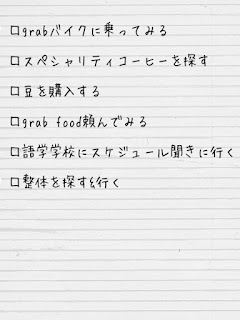 □grabバイクに乗ってみる
□スペシャリティコーヒーを探す
□豆を購入する
□grab food頼んでみる
□語学学校にスケジュール聞きに行く
□整体を探す&行く